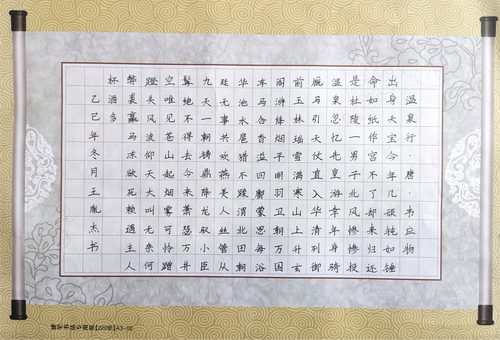 温泉行·唐·韦应物
出身天宝今年几顽钝如锤
命如纸作官不了却来归还
是杜陵一男子北风惨惨投
温泉忽忆先皇游幸年身骑
厩马引天仗直入华清列御
前玉林瑶雪满寒山上升玄
阁游绛烟平明羽卫朝万国
车马合沓溢四鄽蒙恩每浴
华池水扈猎不蹂渭北田朝
廷无事共欢燕美人丝管从
九天一朝铸鼎降龙驭小臣
髯绝不得去今来萧瑟万井
空唯见苍山起烟雾可怜蹭
蹬失风波仰天大叫无奈何
弊裘羸马冻欲死赖遇主人
杯酒多
乙巳年冬月王胤杰书